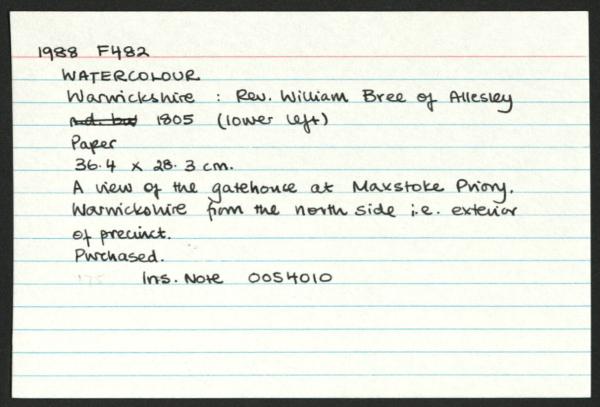 1988 F482
WATERCOLOUR
Warwickshire : Rev. William Bree of Allesley
n.d. but 1805 (lower left)
Paper
36.4 x 28.3 cm.
A view of the gatehouse at Maxstoke Priory,
Warwickshire from the north side i.e. exterior
of precinct.
Purchased.
175
Ins. Note 0054010